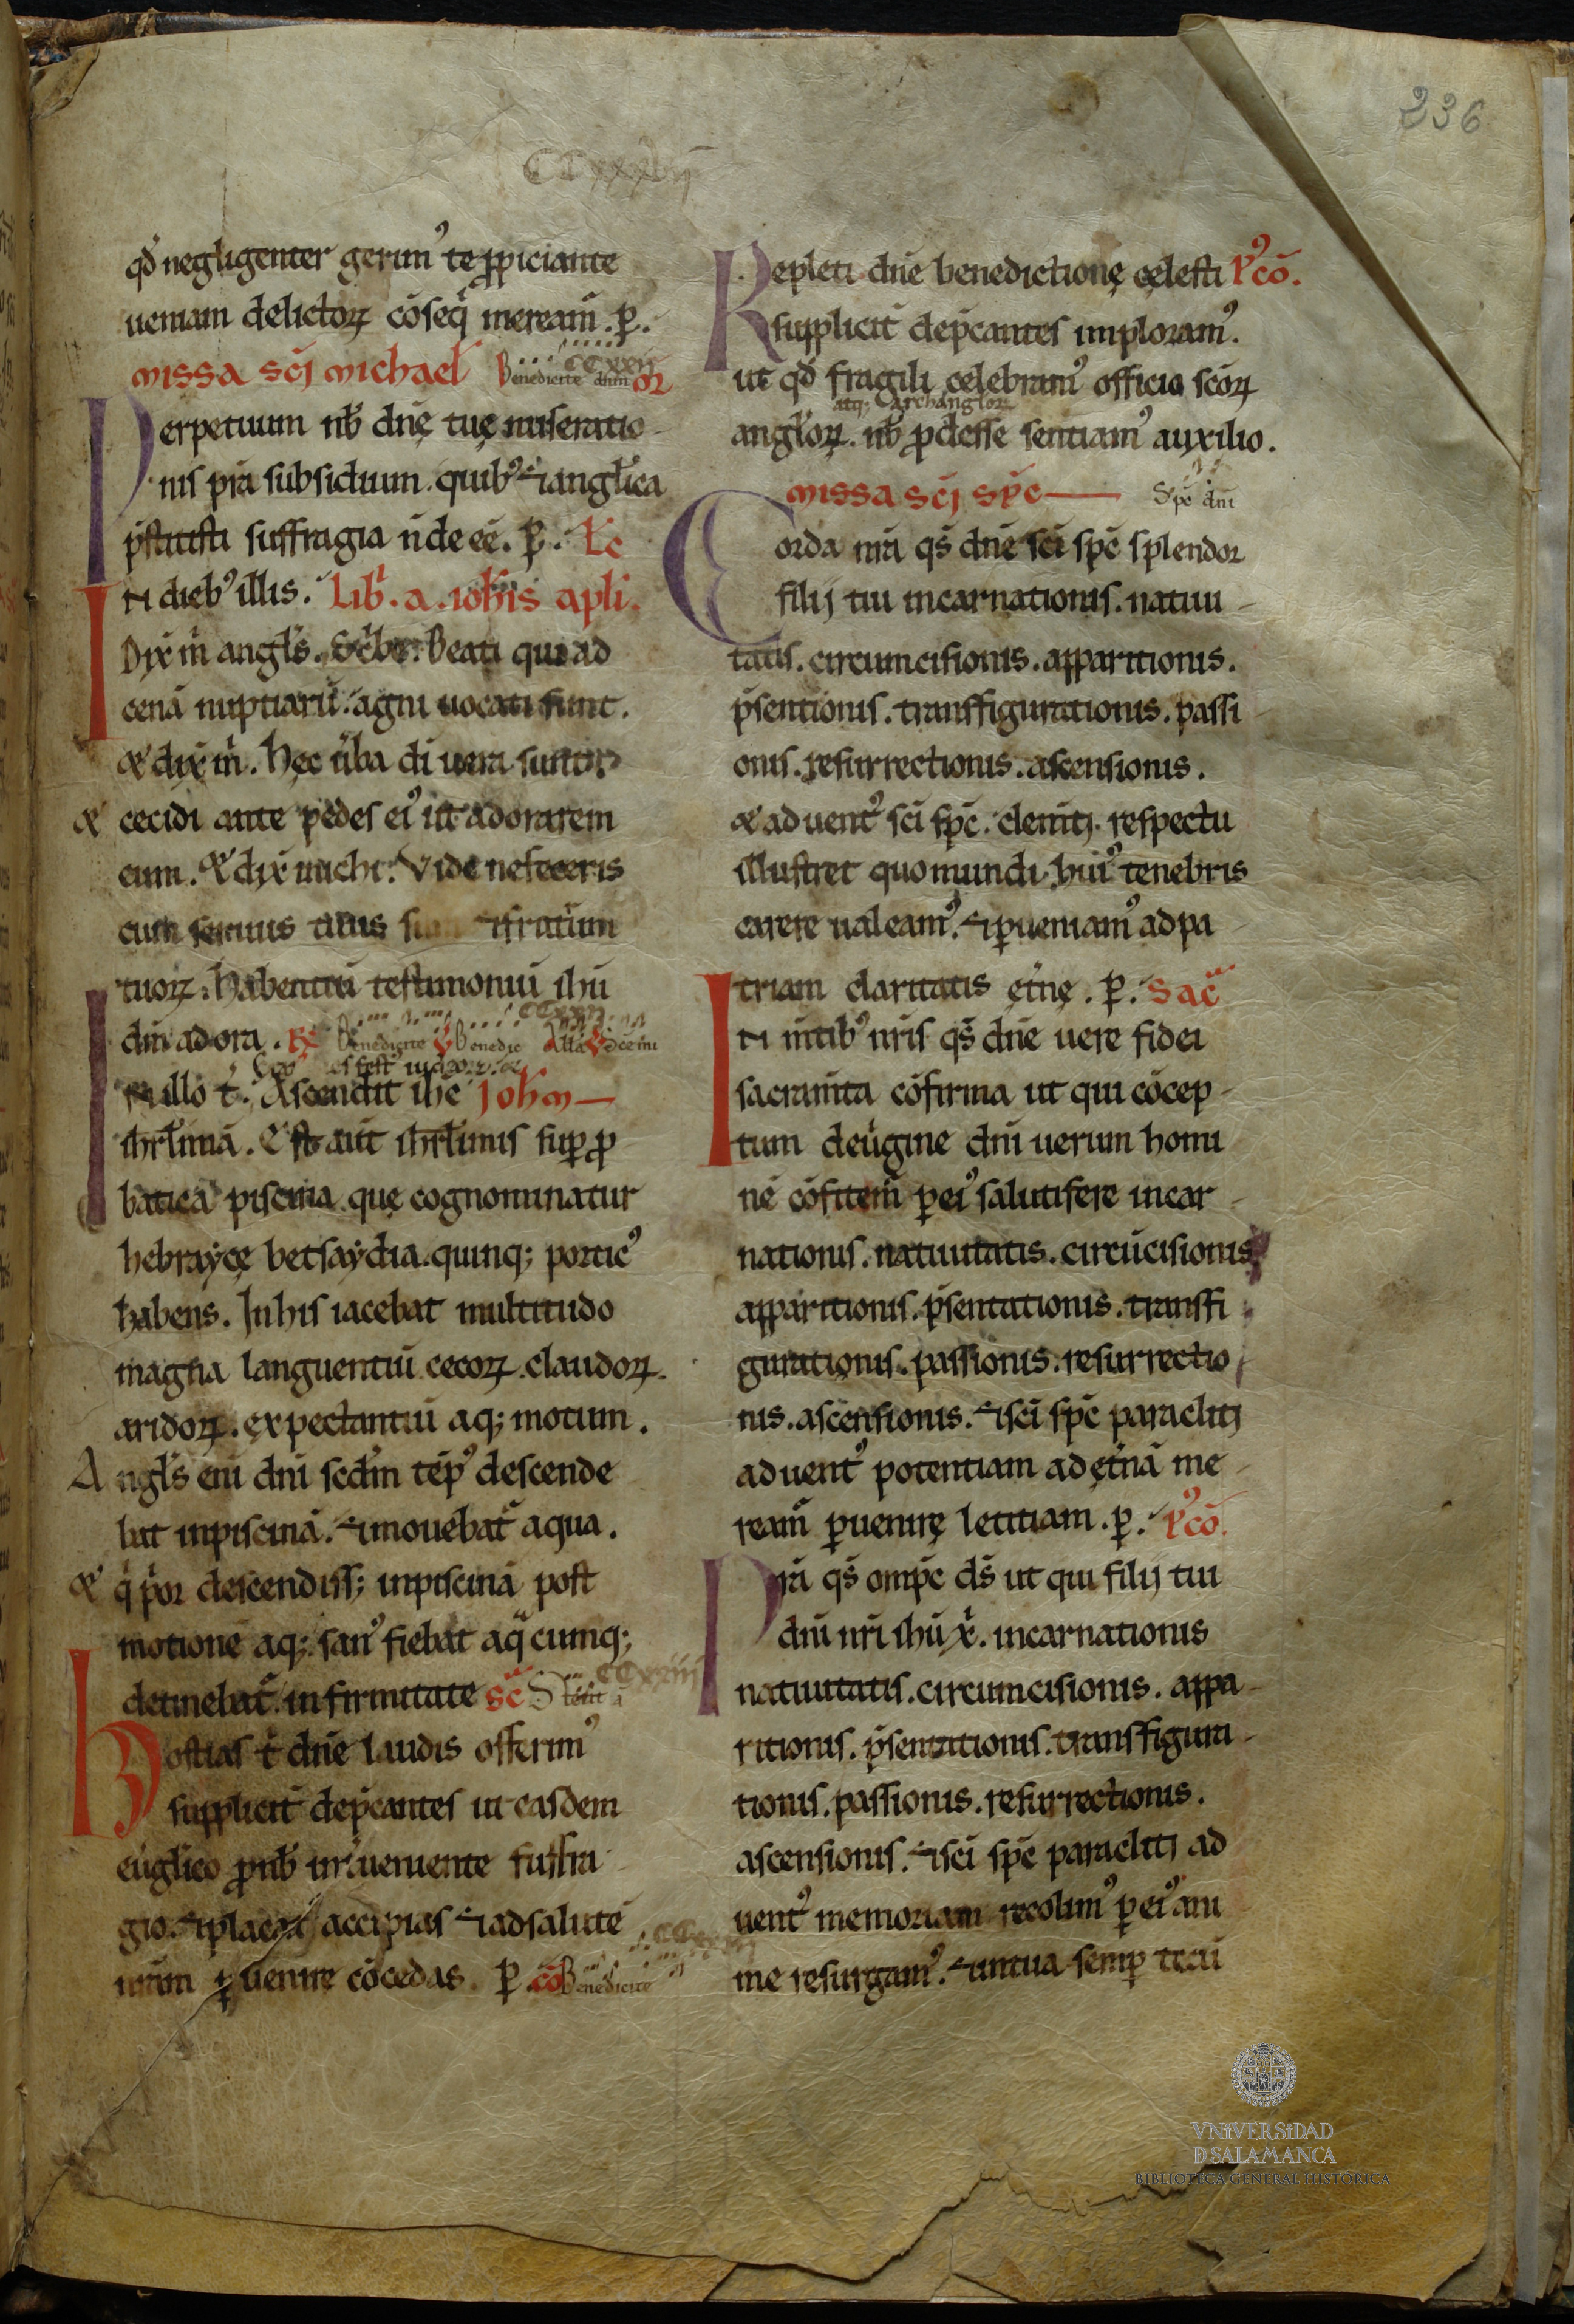 236
CCxxxvij
qd̄ negligenter gerimꝰ te ꝓpiciante
ueniam delictoꝝ cōseq̄ meream̄. ꝑ.
missa scī michael Benedicite dnm̄ CCxxij oꝛ
Perpetuum nb̄ dn̄ę tuę miseratio
nis p̄ra subsidium. quibꝰ ⁊ anglīca
p̄stitisti suffragia n̄ deeē. ꝑ. Lc̄
In diebꝰ illis. Lib̄. a. ioh̄is apl̄i.
Dix̄ m̄ angl̄s. Sc̄be. Beati qui ad
cenā nuptiarū agni uocati sunt.
& dix̄ m̄. hęc ūba dī uera sunt.
& cecidi ante pedes eiꝰ ut adorarem
eum. & dix̄ michi. Vide ne feceris
cum seruus tuus ⁊ fratrū̄m
tuoꝝ. habentiū testimoniū ih̄u
dm̄ adora. ℞ Benedicite ℣ Benedic All̄a ℣
In illo t̄. Ascendit ih̄c Ioh̄m
ih̄rl̄imā. Est aut̄ ih̄rl̄imis suꝑ ꝓ
batica piscina quę cognominatur
hebrayce betsaydia. quinq; porticꝰ
habens. In his iacebat multitudo
magna languentiū cecoꝝ. claudoꝝ.
aridoꝝ. expectantiū aq; motum.
Angl̄s eni dn̄i scdm̄ tēpꝰ descende
bat in piscinā. ⁊ mouebat̄ aqua.
& q̄ p̄or descendiss; in piscinā post
motionē aq; sanꝰ fiebat aq̄cumq;
detinebat̄ infirmitate sc̄ Stetit ā CCxxiiij
Hostias t̄ dn̄e laudis offerimꝰ
supplicit̄ dep̄cantes ut easdem
eūgl̄ico ꝓ nb̄ int̄ueniente suffra
gio. ⁊ placat accipias ⁊ ad salutē
nrām ꝓuenire cōcedas. ꝑ cō Benedicite
Repleti dn̄e benedictionę cęlesti Pꝰcō.
supplicit̄ dep̄cantes imploramꝰ.
ut qd̄ fragili celebramꝰ officio sc̄oꝝ
atq; archangl̄oꝝ
angl̄oꝝ. nb̄ ꝓdesse sentiamꝰ auxilio.
missa scī sp̄c Sp̄c dn̄i
Corda nr̄a qs̄ dn̄e scī sp̄c splendor
filij tui incarnationis. natiui
tatis. circumcisionis. apparitionis.
p̄sentionis. transffigurationis. passi
onis. resurrectionis. ascensionis.
& aduentꝰ scī sp̄c. clenitj. respectu
illustret quo mundi huiꝰ tenebris
carere ualeamꝰ. ⁊ ꝑueniamꝰ ad pa
triam claritatis ęt̄nę. ꝑ. Sac̄
In m̄tibꝰ nr̄is qs̄ dn̄e uere fidei
sacram̄ta cōfirma ut qui cōcep
tum de ūgine dm̄ uerum homi
nē cōfitem̄ ꝑ eiꝰ salutifere incar
nationis. natiuitatis. circūcisionis
apparitionis. p̄sentationis. transffi
gurationis. passionis. resurrectio
nis. ascensionis. ⁊ scī sp̄c paraclitj
aduentꝰ potentiam ad ęt̄nā me
ream̄ ꝑuenirę letitiam. ꝑ. Pꝰcō.
Pr̄a qs̄ omp̄c ds̄ ut qui filij tui
dn̄i nr̄i ih̄u xp̄i. incarnationis
natiuitatis. circumcisionis. appa
ritionis. p̄sentationis. transffigura
tionis. passionis. resurrectionis.
ascensionis. ⁊ scī sp̄c paraclitj ad
uentꝰ memoriam recolimꝰ ꝑ eiꝰ ani
me resurgamꝰ. ⁊ in tua semꝑ tecū
VNIVERSIDAD
D SALAMANCA
BIBLIOTECA GENERAL HISTÓRICA